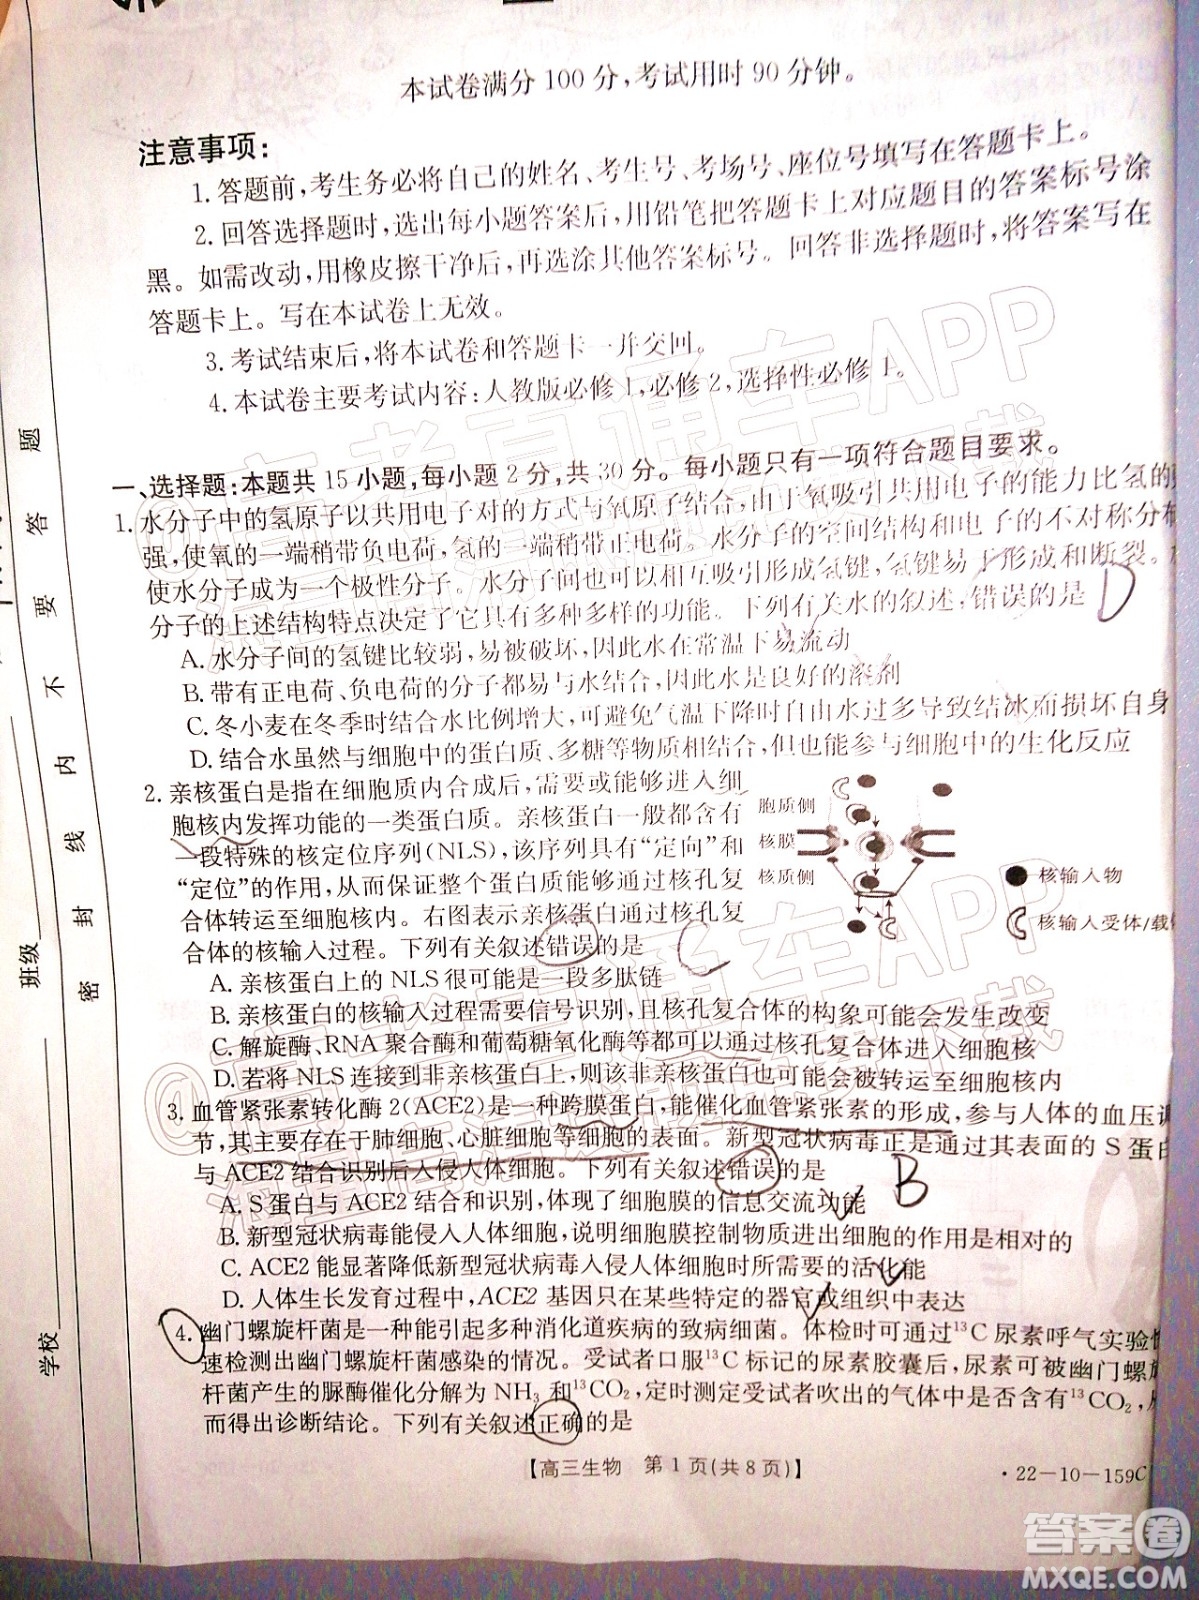 本试卷满分100分,考试用时90分钟。
注意事项:
1.答题前,考生务必将自己的姓名、考生号、考场号、座位号填写在答题卡上。
2.回答选择题时,选出每小题答案后,用铅笔把答题卡上对应题目的答案标号涂
黑。如需改动,用橡皮擦干净后,再选涂其他答案标号。回答非选择题时,将答案写在
答题卡上。写在本试卷上无效。
3.考试结束后,将本试卷和答题卡一并交回。
4.本试卷主要考试内容:人教版必修1,必修2,选择性必修1。
一、选择题:本题共15小题,每小题2分,共30分。每小题只有一项符合题目要求。
1.水分子中的氢原子以共用电子对的方式与氧原子结合,由于氧吸引共用电子的能力比氢的更
强,使氧的一端稍带负电荷,氢的一端稍带正电荷。水分子的空间结构和电子的不对称分布
使水分子成为一个极性分子。水分子间也可以相互吸引形成氢键,氢键易于形成和断裂。
分子的上述结构特点决定了它具有多种多样的功能。下列有关水的叙述,错误的是 D
A.水分子间的氢键比较弱,易被破坏,因此水在常温下易流动
B.带有正电荷、负电荷的分子都易与水结合,因此水是良好的溶剂
C.冬小麦在冬季时结合水比例增大,可避免气温下降时自由水过多导致结冰而损坏自身
D.结合水虽然与细胞中的蛋白质、多糖等物质相结合,但也能参与细胞中的生化反应
2.亲核蛋白是指在细胞质内合成后,需要或能够进入细
胞核内发挥功能的一类蛋白质。亲核蛋白一般都含有
一段特殊的核定位序列(NLS),该序列具有“定向”和
“定位”的作用,从而保证整个蛋白质能够通过核孔复
合体转运至细胞核内。右图表示亲核蛋白通过核孔复
合体的核输入过程。下列有关叙述错误的是 C
胞质侧
核膜
核质侧
核输入物
核输入受体/载体
A.亲核蛋白上的NLS很可能是一段多肽链
B.亲核蛋白的核输入过程需要信号识别,且核孔复合体的构象可能会发生改变
C.解旋酶、RNA聚合酶和葡萄糖氧化酶等都可以通过核孔复合体进入细胞核
D.若将NLS连接到非亲核蛋白上,则该非亲核蛋白也可能会被转运至细胞核内
3.血管紧张素转化酶2(ACE2)是一种跨膜蛋白,能催化血管紧张素的形成,参与人体的血压调
节,其主要存在于肺细胞、心脏细胞等细胞的表面。新型冠状病毒正是通过其表面的S蛋白
与ACE2结合识别后入侵人体细胞。下列有关叙述错误的是 B
A.S蛋白与ACE2结合和识别,体现了细胞膜的信息交流功能
B.新型冠状病毒能侵入人体细胞,说明细胞膜控制物质进出细胞的作用是相对的
C.ACE2能显著降低新型冠状病毒入侵人体细胞时所需要的活化能
D.人体生长发育过程中,ACE2基因只在某些特定的器官或组织中表达
4.幽门螺旋杆菌是一种能引起多种消化道疾病的致病细菌。体检时可通过¹³C尿素呼气实验快
速检测出幽门螺旋杆菌感染的情况。受试者口服¹³C标记的尿素胶囊后,尿素可被幽门螺旋
杆菌产生的脲酶催化分解为NH₃和¹³CO₂,定时测定受试者吹出的气体中是否含有¹³CO₂,从
而得出诊断结论。下列有关叙述正确的是
【高三生物 第1页(共8页)】
·22-10-159C
学校
班级
密 封 线 内 不 要 答 题
答案卷
MXQE.COM